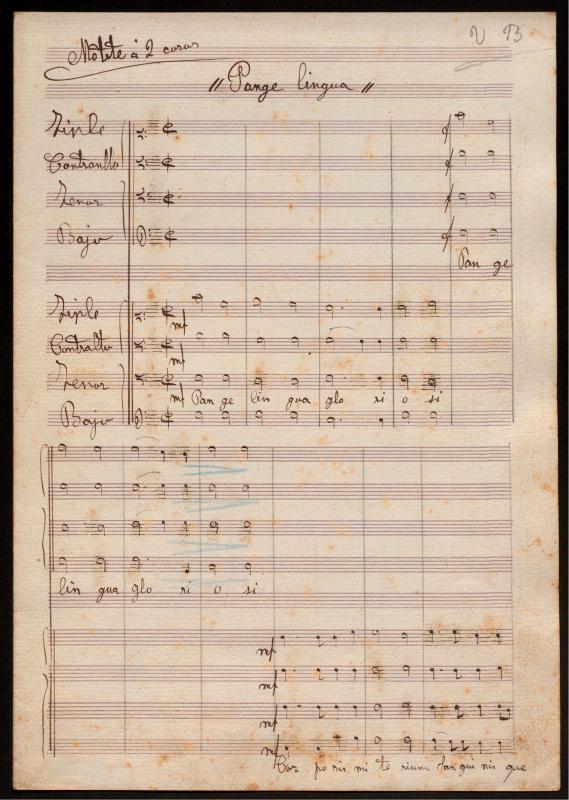 Motete à 2 coros
"Pange lingua"
Tiple
Contranlto
Tenor
Bajo
f
f
f
f
Pan ge
Tiple
Contralto
Tenor
Bajo
mf
mf
mf
Pan ge lin gua glo ri o si
lin gua glo ri o si
mf
mf
mf
mf
Cor po ris mi te rium San gui nis que